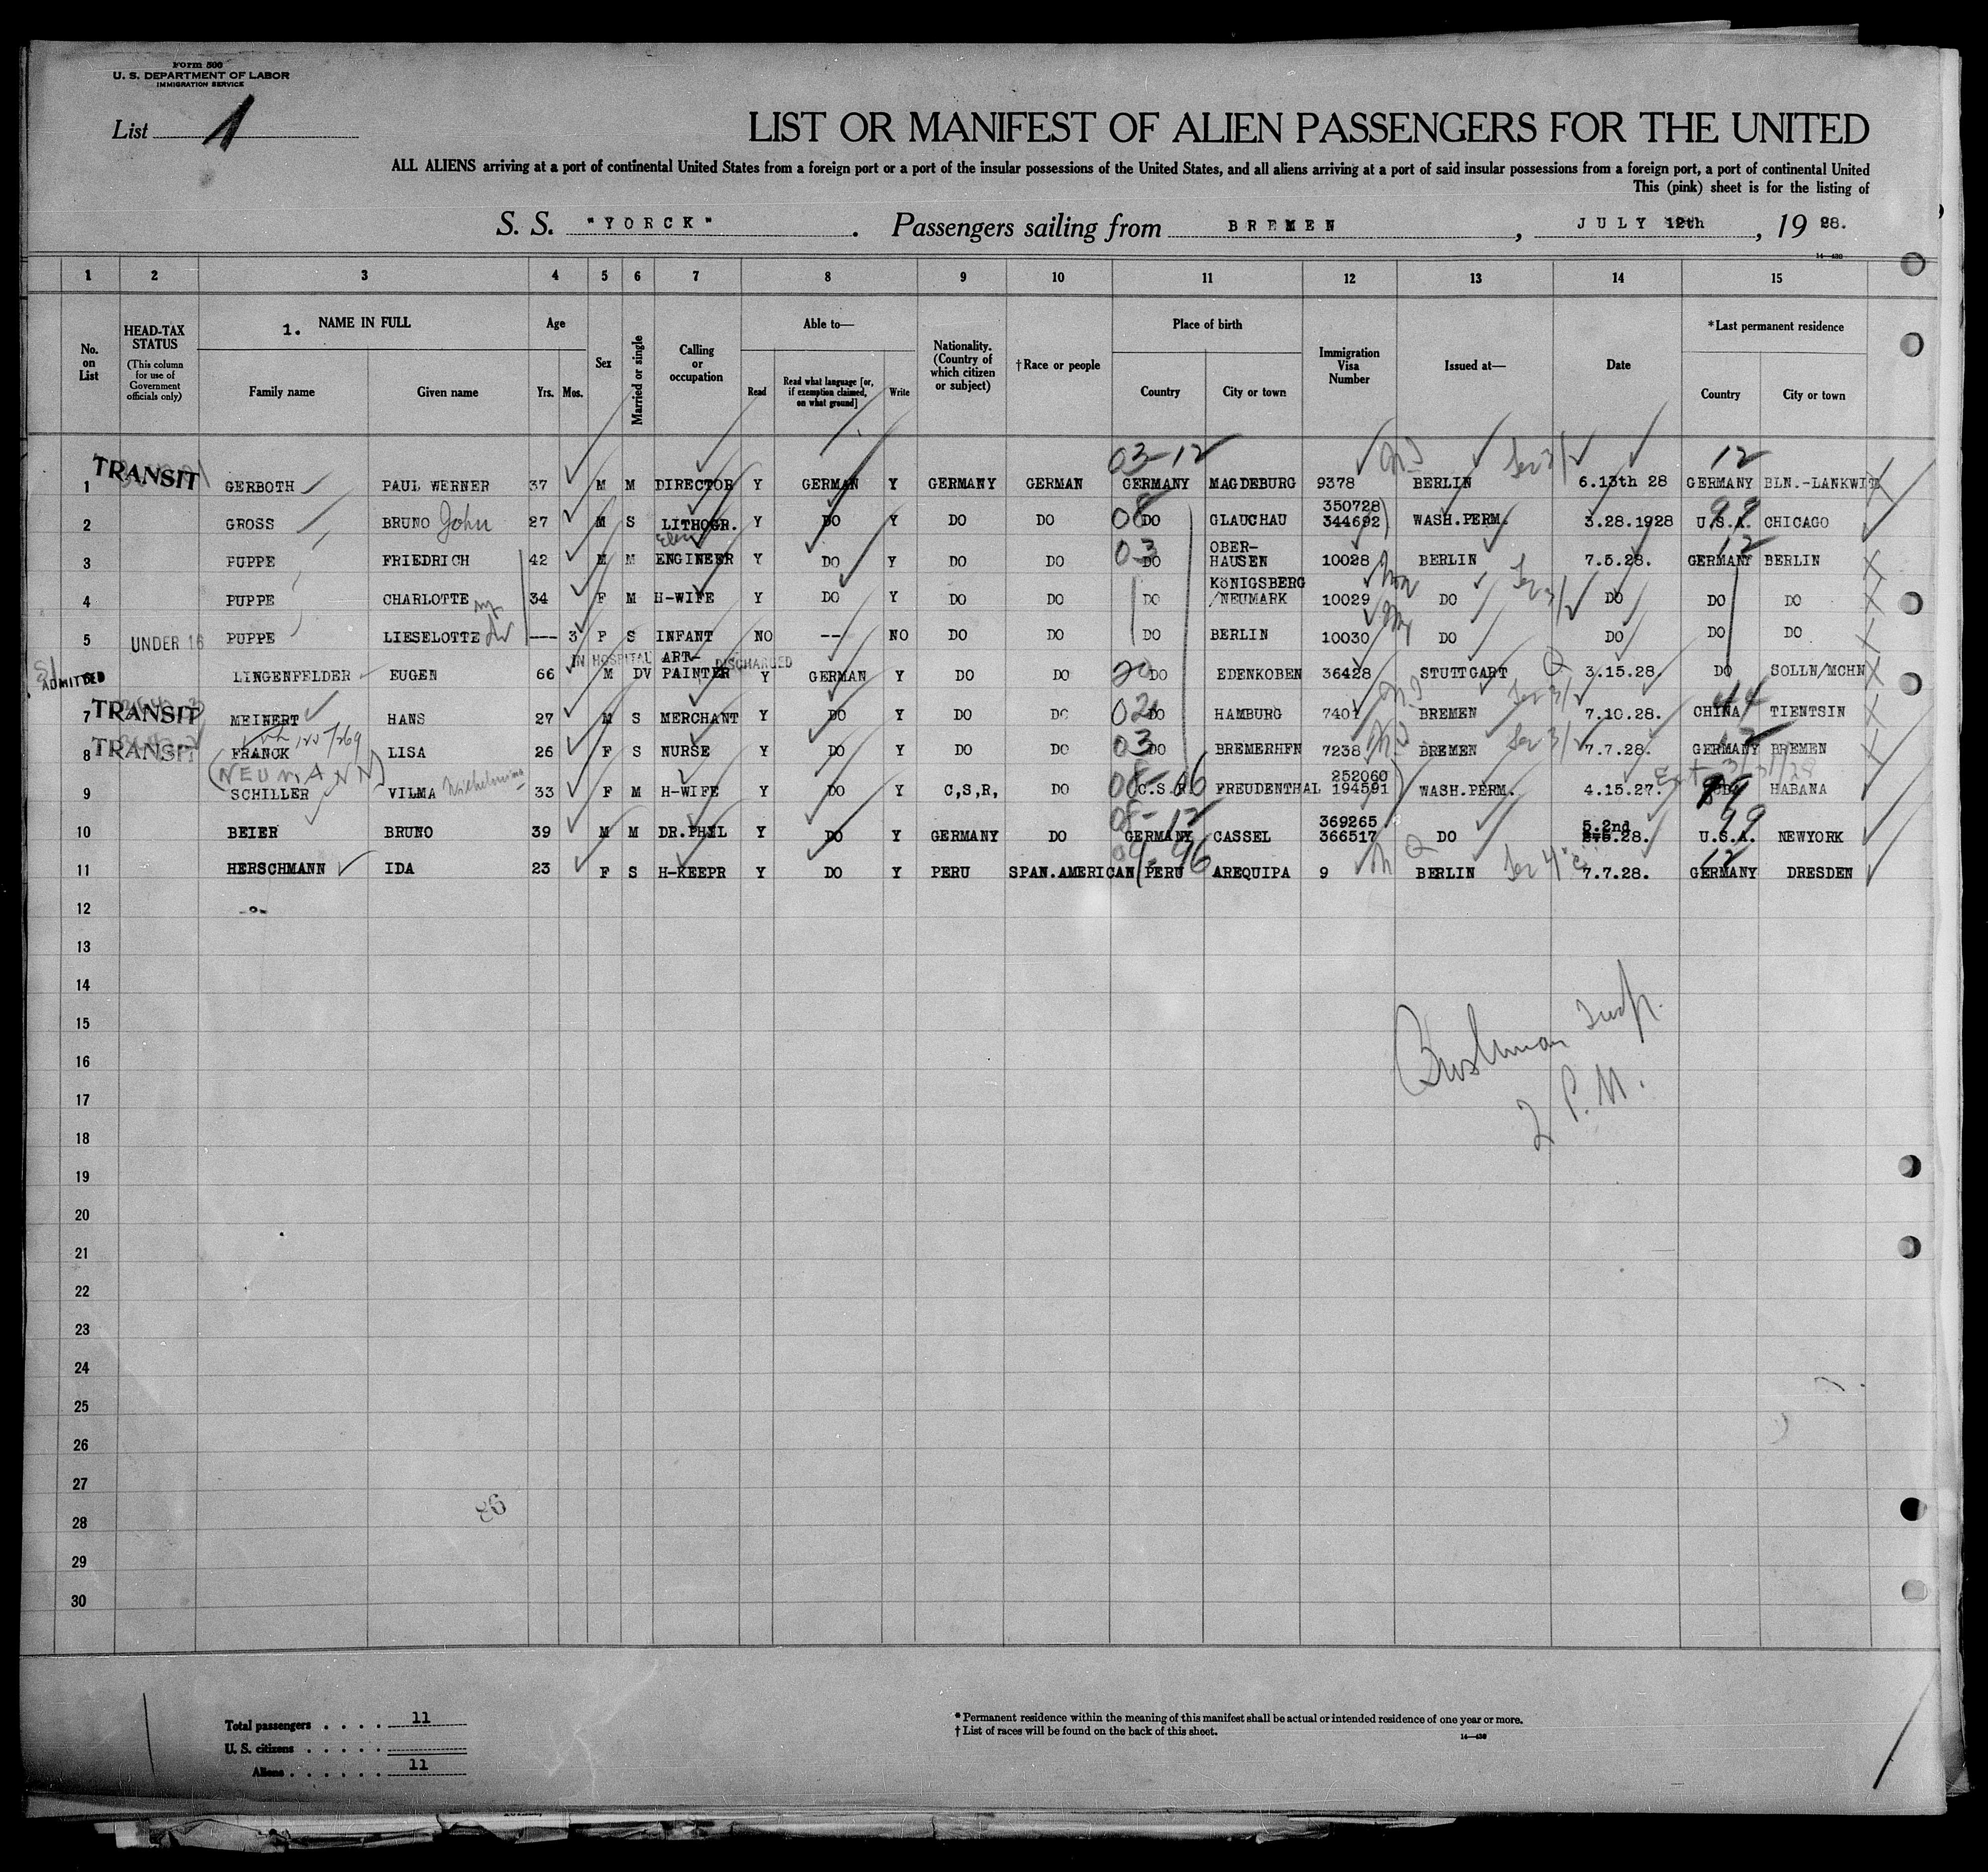 Form 500
U. S. DEPARTMENT OF LABOR
IMMIGRATION SERVICE
List 1
LIST OR MANIFEST OF ALIEN PASSENGERS FOR THE UNITED
ALL ALIENS arriving at a port of continental United States from a foreign port or a port of the insular possessions of the United States, and all aliens arriving at a port of said insular possessions from a foreign port, a port of continental United
This (pink) sheet is for the listing of
S. S. "YORCK". Passengers sailing from BREMEN, JULY 12th, 1928.
1 2 3 4 5 6 7 8 9 10 11 12 13 14 15
No. on List
HEAD-TAX STATUS (This column for use of Government officials only)
1. NAME IN FULL Family name Given name
Age Yrs. Mos.
Sex
Married or single
Calling or occupation
Able to— Read Read what language [or, if exemption claimed, on what ground] Write
Nationality. (Country of which citizen or subject)
†Race or people
Place of birth Country City or town
Immigration Visa Number
Issued at—
Date
*Last permanent residence Country City or town
03-12 12
1 TRANSIT GERBOTH PAUL WERNER 37 M M DIRECTOR Y GERMAN Y GERMANY GERMAN GERMANY MAGDEBURG 9378 BERLIN 6.13th 28 GERMANY BLN.-LANKWITZ
350728
2 GROSS BRUNO John 27 M S LITHOGR. Y DO Y DO DO 08 DO GLAUCHAU 344692) WASH.PERM. 3.28.1928 99 U.S.A. CHICAGO
OBER-
3 PUPPE FRIEDRICH 42 M M Elec ENGINEER Y DO Y DO DO 03 DO HAUSEN 10028 BERLIN 7.5.28. 12 GERMANY BERLIN
KÖNIGSBERG
4 PUPPE CHARLOTTE 34 F M H-WIFE Y DO Y DO DO DO /NEUMARK 10029 DO DO DO DO
5 UNDER 16 PUPPE LIESELOTTE --- 3 F S INFANT NO -- NO DO DO DO BERLIN 10030 DO DO DO DO
IN HOSPITAL ART- DISCHARGED
SI ADMITTED 6 LINGENFELDER EUGEN 66 M DV PAINTER Y GERMAN Y DO DO 20 DO EDENKOBEN 36428 STUTTGART 3.15.28. DO SOLLN/MCHN
7 TRANSIT MEINERT HANS 27 M S MERCHANT Y DO Y DO DO 02 DO HAMBURG 7401 BREMEN 7.10.28. 44 CHINA TIENTSIN
8 TRANSIT FRANCK LISA 26 F S NURSE Y DO Y DO DO 03 DO BREMERHFN 7238 BREMEN 7.7.28. 12 GERMANY BREMEN
(NEUMANN) 252060 Ext 3/31/28
9 SCHILLER VILMA Wilhelmina 33 F M H-WIFE Y DO Y C,S,R, DO 08-16 C.S.R. FREUDENTHAL 194591 WASH.PERM. 4.15.27. HABANA
08-12 369265 5.2nd 99
10 BEIER BRUNO 39 M M DR.PHIL Y DO Y GERMANY DO GERMANY CASSEL 366517 DO 28. U.S.A. NEWYORK
96 12
11 HERSCHMANN IDA 23 F S H-KEEPR Y DO Y PERU SPAN.AMERICAN PERU AREQUIPA 9 BERLIN 7.7.28. GERMANY DRESDEN
12 -o-
13
14
15
Bushman Insp.
16
17
2 P.M.
18
19
20
21
22
23
24
25
26
27
86
28
29
30
Total passengers . . . . 11
U. S. citizens . . . . .
Aliens . . . . . . 11
* Permanent residence within the meaning of this manifest shall be actual or intended residence of one year or more.
† List of races will be found on the back of this sheet.
14—430